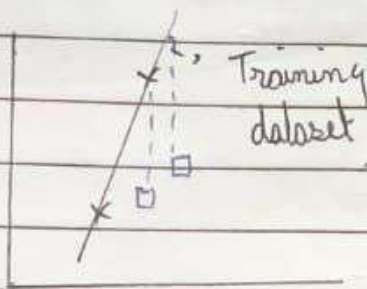 Training
dataset